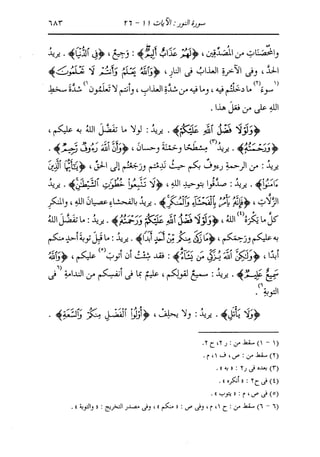 سورة النور: الآيات ١١ - ٢٦ ٦٨٣
والمُحْصَنات من المُصَدِّقين، ﴿لَهُمْ عَذَابٌ أَلِيمٌ﴾: وَجِيع، ﴿فِي الدُّنْيَا﴾. يريدُ
الحَدَّ، وفى الآخرةِ العذابُ فى النارِ، ﴿وَاللَّهُ يَعْلَمُ وَأَنتُمْ لَا تَعْلَمُونَ﴾
(١)سُوءَ(١) ما دخَلْتُم فيه، وما فيه من شدَّةِ العذابِ، وأنتم لا تعلَمون(٢) شدَّةَ سخطِ
اللهِ على من فعَل هذا.
﴿وَلَوْلَا فَضْلُ اللَّهِ عَلَيْكُمْ﴾. يريدُ: لولا ما تفَضَّل اللهُ به عليكم،
﴿وَرَحْمَتُهُ﴾. يريدُ(٣) مِسْطَحًا وحَمْنَةَ وحسانَ، ﴿وَأَنَّ اللَّهَ رَءُوفٌ رَّحِيمٌ﴾.
يريدُ: من الرحمةِ رءوفٌ بكم حيثُ نَدِمتُم ورجَعتُم إلى الحقِّ، ﴿يَاأَيُّهَا الَّذِينَ
ءَامَنُوا﴾. يريدُ: صدَّقُوا بتوحيدِ اللهِ، ﴿لَا تَتَّبِعُوا خُطُوَاتِ الشَّيْطَانِ﴾. يريدُ
الزَّلَّاتِ، ﴿فَإِنَّهُ يَأْمُرُ بِالْفَحْشَاءِ وَالْمُنكَرِ﴾. يريدُ بالفحشاءِ عصيانَ اللهِ، والمنكرِ
كلَّ ما يَكْرَهُ(٤) اللهُ، ﴿وَلَوْلَا فَضْلُ اللَّهِ عَلَيْكُمْ وَرَحْمَتُهُ﴾. يريدُ: ما تفضَّل اللهُ
به عليكم ورحِمكم، ﴿مَا زَكَى مِنكُم مِّنْ أَحَدٍ أَبَدًا﴾. يريدُ: ما قَبِل توبةَ أحدٍ منكم
أبدًا، ﴿وَلَكِنَّ اللَّهَ يُزَكِّي مَن يَشَاءُ﴾: فقد شِئْتُ أن أتوبَ(٥) عليكم، ﴿وَاللَّهُ
سَمِيعٌ عَلِيمٌ﴾. يريدُ: سميعٌ لقولِكم، عليمٌ بما فى أنفسِكم من الندامةِ (٦)فى
التوبةِ(٦).
﴿وَلَا يَأْتَلِ﴾. يريدُ: ولا يحلِف، ﴿أُولُوا الْفَضْلِ مِنكُمْ وَالسَّعَةِ﴾.
(١ - ١) سقط من: ر٢، ح٢.
(٢) سقط من: ص، ف١، م.
(٣) بعده فى ر٢: «به».
(٤) فى ح٢: «أنكره».
(٥) فى ص، م: «يتوب».
(٦ - ٦) سقط من: ح١، م، وفى ص: «منكم»، وفى مصدر التخريج: «والتوبة».